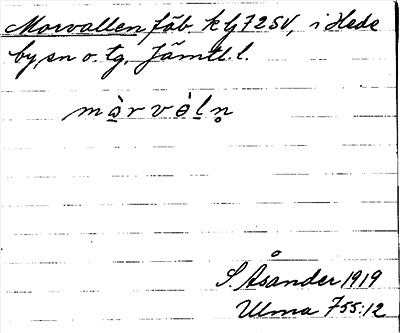 Morvallen fäb. k lj 72 SV, i Hede
by, sn o. tg, Jämtl. l.
màrvàln̥
S. Åsander 1919
Ulma 755:12